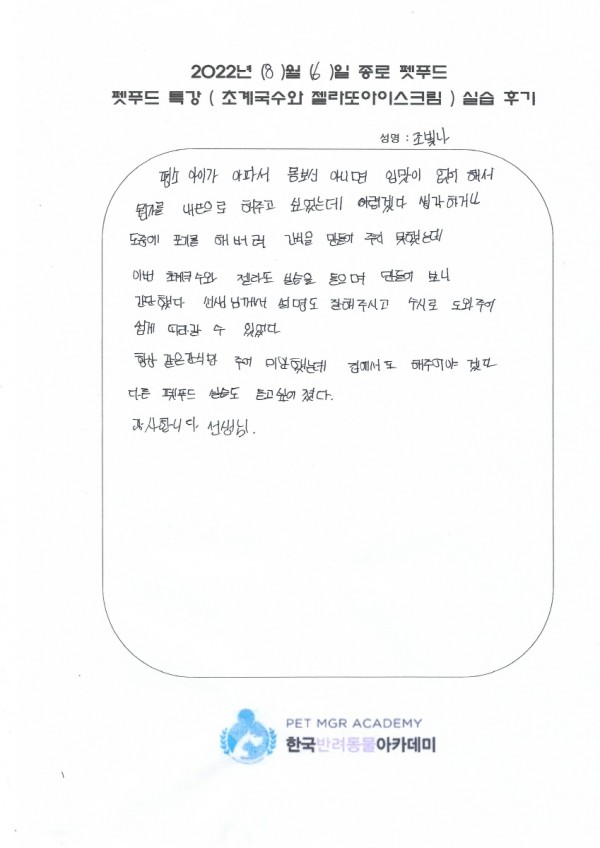 2022년 (8)월 (6)일 종로 펫푸드
펫푸드 특강 ( 초계국수와 젤라또아이스크림 ) 실습 후기
성명 : 조빛나
평소 아이가 아파서 몸보신 아니면 입맛이 없이 해서
뭔가를 내손으로 해주고 싶었는데 어렵겠다 생각하거나
도중에 포기를 해 버려 간식을 만들어 주지 못했는데
이번 초계국수와 젤라또 실습을 들으며 만들어 보니
간단했다 선생님께서 설명도 잘해주시고 수시로 도와주어
쉽게 따라갈 수 있었다
항상 같은간식만 주어 미안했는데 집에서도 해주어야 겠다
다른 펫푸드 실습도 듣고싶어 졌다.
감사합니다 선생님.
PET MGR ACADEMY
한국반려동물아카데미